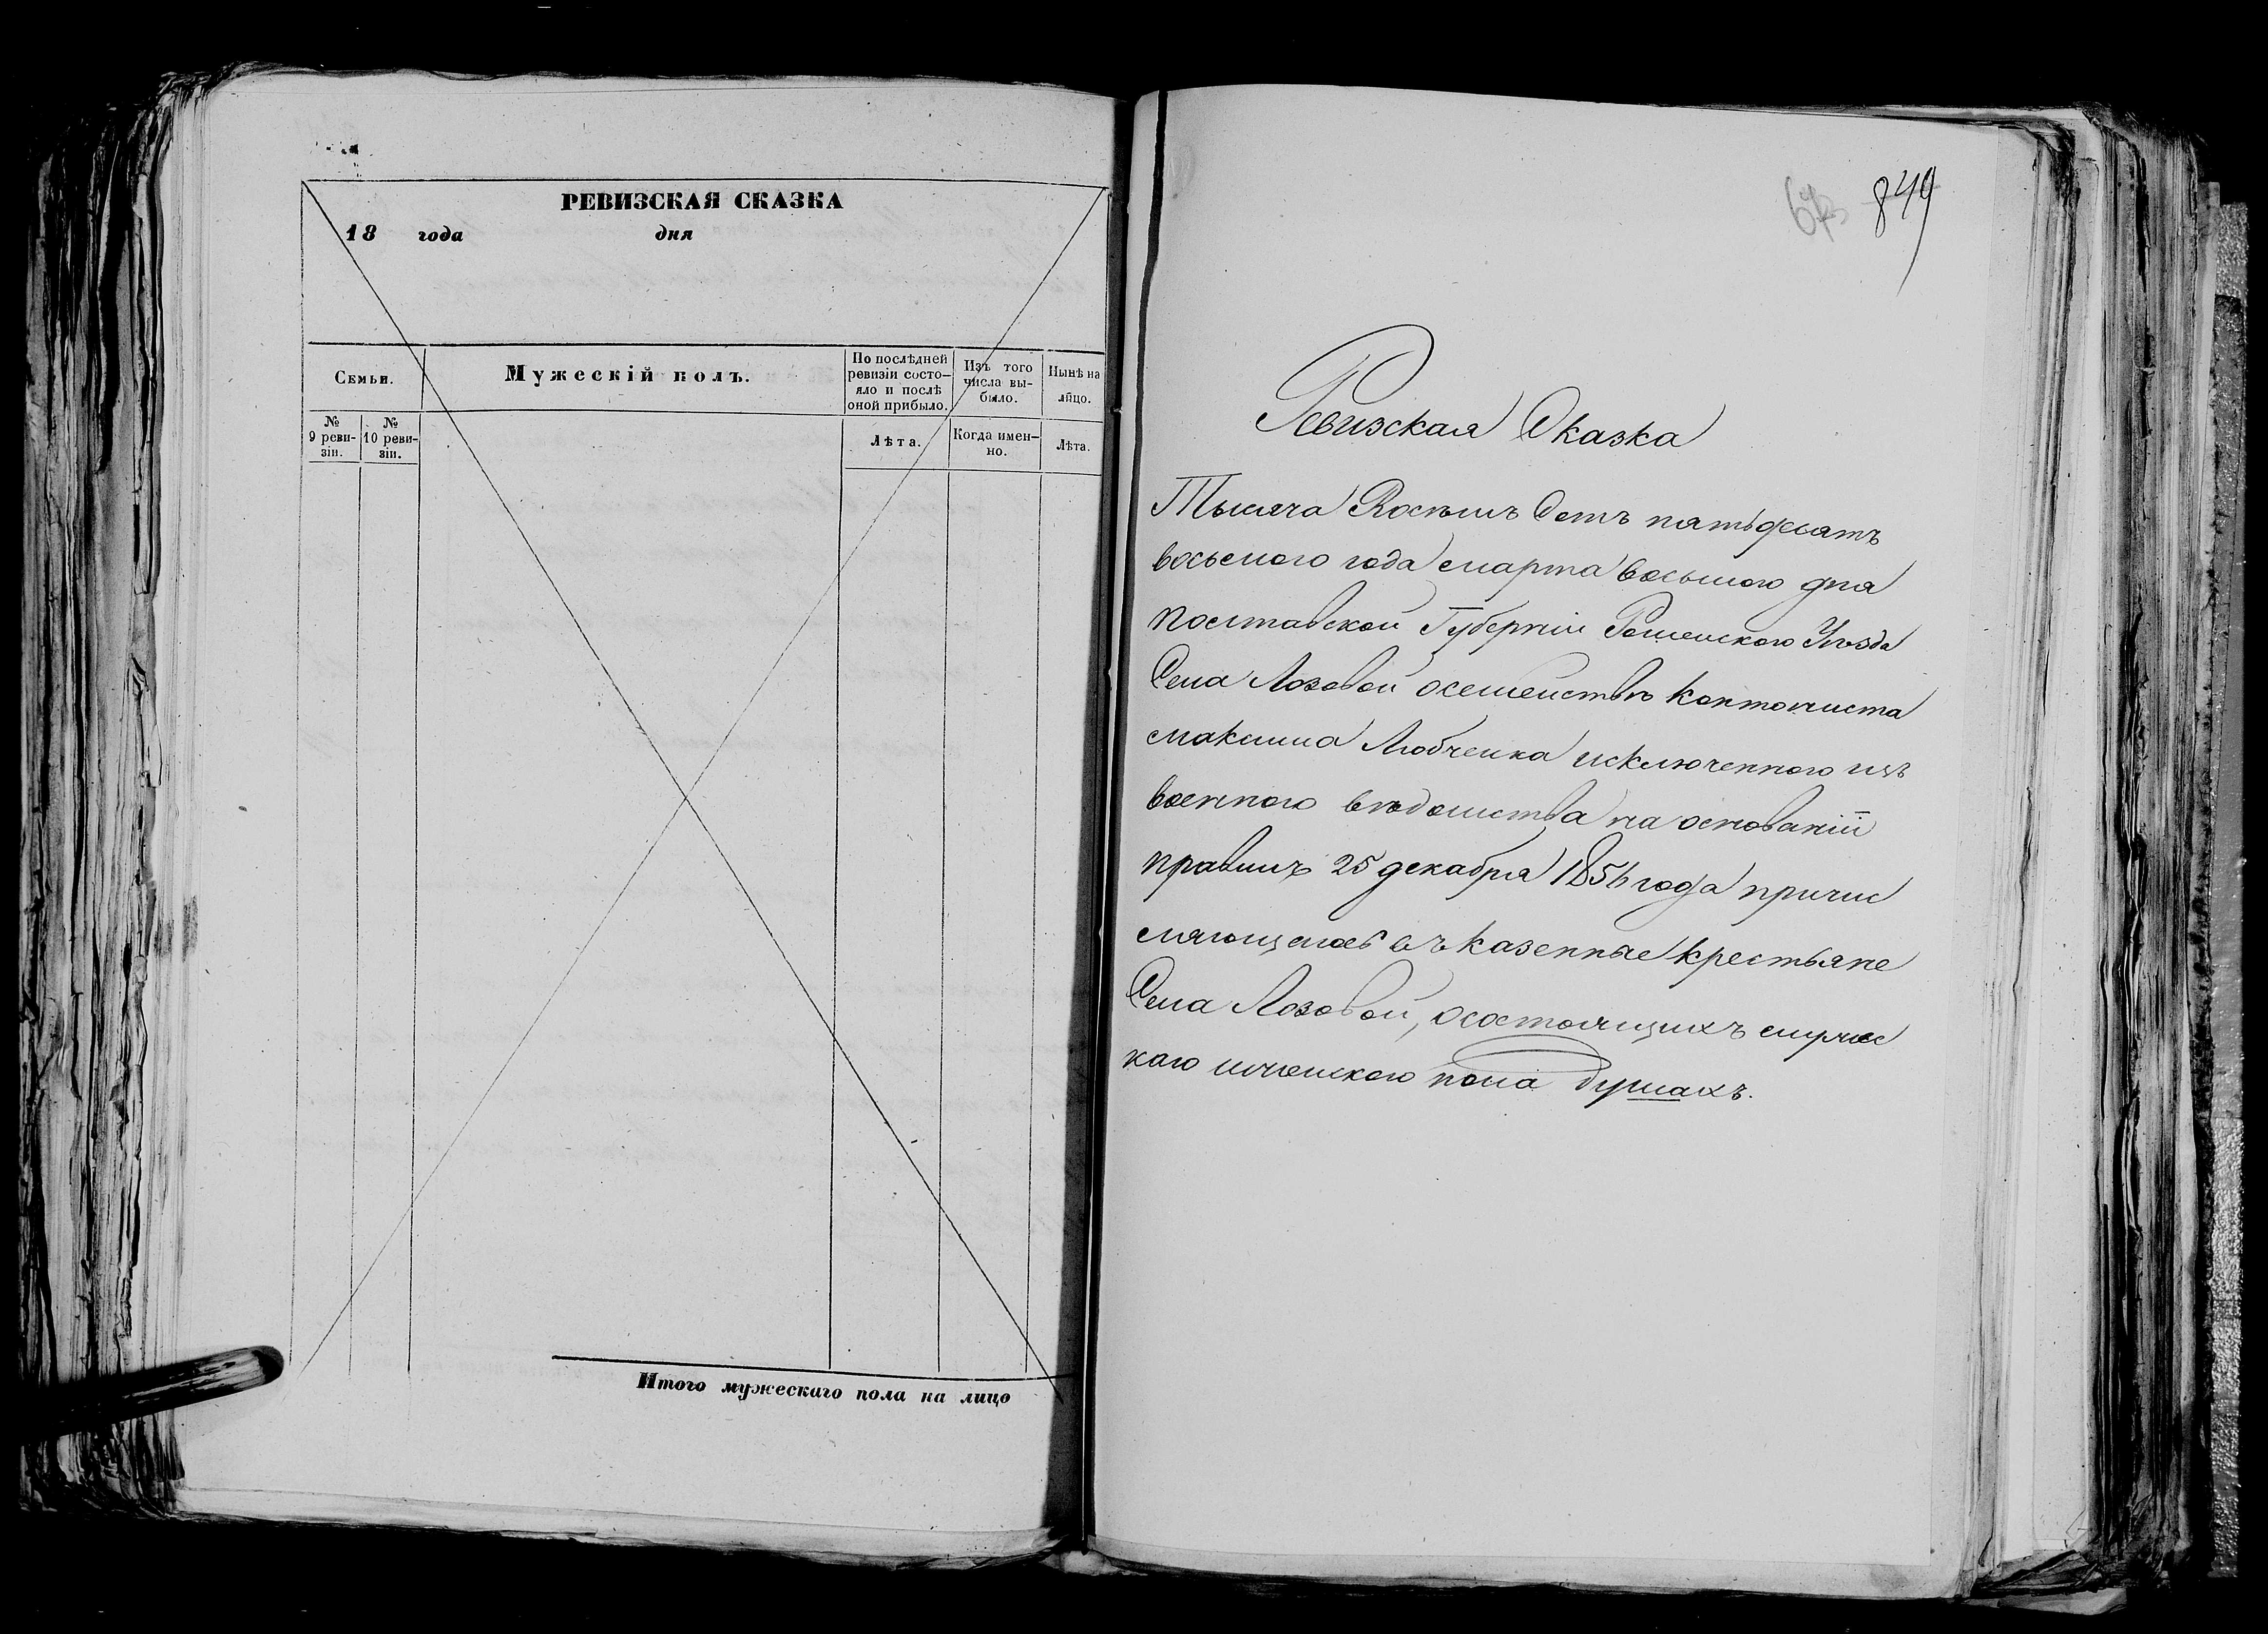 РЕВИЗСКАЯ СКАЗКА
18 года дня
Семьи.
Мужескій полъ.
По послѣдней
ревизіи состо-
яло и послѣ
оной прибыло.
Изъ того
числа вы-
было.
Нынѣ на
лицо.
№
9 реви-
зіи.
№
10 реви-
зіи.
Лѣта.
Когда имен-
но.
Лѣта.
Итого мужескаго пола на лицо
849
Ревизская Сказка
Тысяча Восѣмъ Сотъ пятьдесятъ
восьмого года марта восьмого дня
Полтавской Губерніи Роменского Уѣзда
Села Лозовой осемействѣ Кантониста
максима Любченка исключенного изъ
военного вѣдомства на основаніи
правилъ 25 декабря 1856 года причис
ляющемся въ казенные крестьяне
Села Лозовой, осостоящихъ мужес
кого иженского пола душахъ.